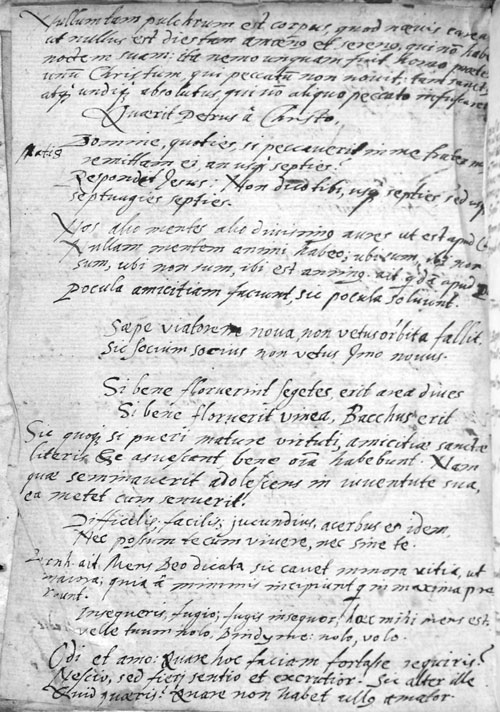 Nullum tam pulchrum est corpus, quod nævis careat
ut nullus est dies tam amœno et sereno, qui nō habe
noctem suam: ita nemo unquam fuit homo præter
unū Christum, qui peccatū non novit: tam sanct
atq; undiq; absolutus qui nō aliquo peccato
Quærit Petrus à Christo.
Domine, quoties, si peccaverit in me frater m
remittam ei, an usq; septies?
Respondet Jesus. Non dico tibi, usq; septies sed usq
septuagies septies.
Nos alio mentes alio divisimus aures ut est apud
Nullam mentem animi habeo; ubi sum, ibi non
sum, ubi non sum, ibi est animus. ait apud
Pocula amicitiam faciunt, sic pocula solvunt.
Sæpe viatorem nova, non vetus orbita fallit,
Sic socium socius non vetus Imo novus.
Si bene floruerint segetes, erit area dives
Si bene floruerit vinea, Bacchus erit
Sic quoq; si pueri mature virtuti, amicitiæ sanctæ
literis, & assuescant bene oīa habebunt. Nam
quæ seminaverit adolescens in iuventute sua,
ea metet cum senuerit.
Difficilis, facilis; jucundus, acerbus es idem,
Nec possum tecum vivere, nec sine te.
ait. Mens Deo dicata sic cavet minora vitia, ut
maiora; quia à minimis incipiunt q in maxima pro
runt.
Insequeris, fugio; fugis insequor; hæc mihi mens est:
velle tuum nolo, Dindyme: nolo, volo.
Odi et amo: Quare hoc faciam fortasse requiris?
Nescio, sed fieri sentio et excrucior. Sic alter ille
Quid quæris? Quare non habet ullo amator